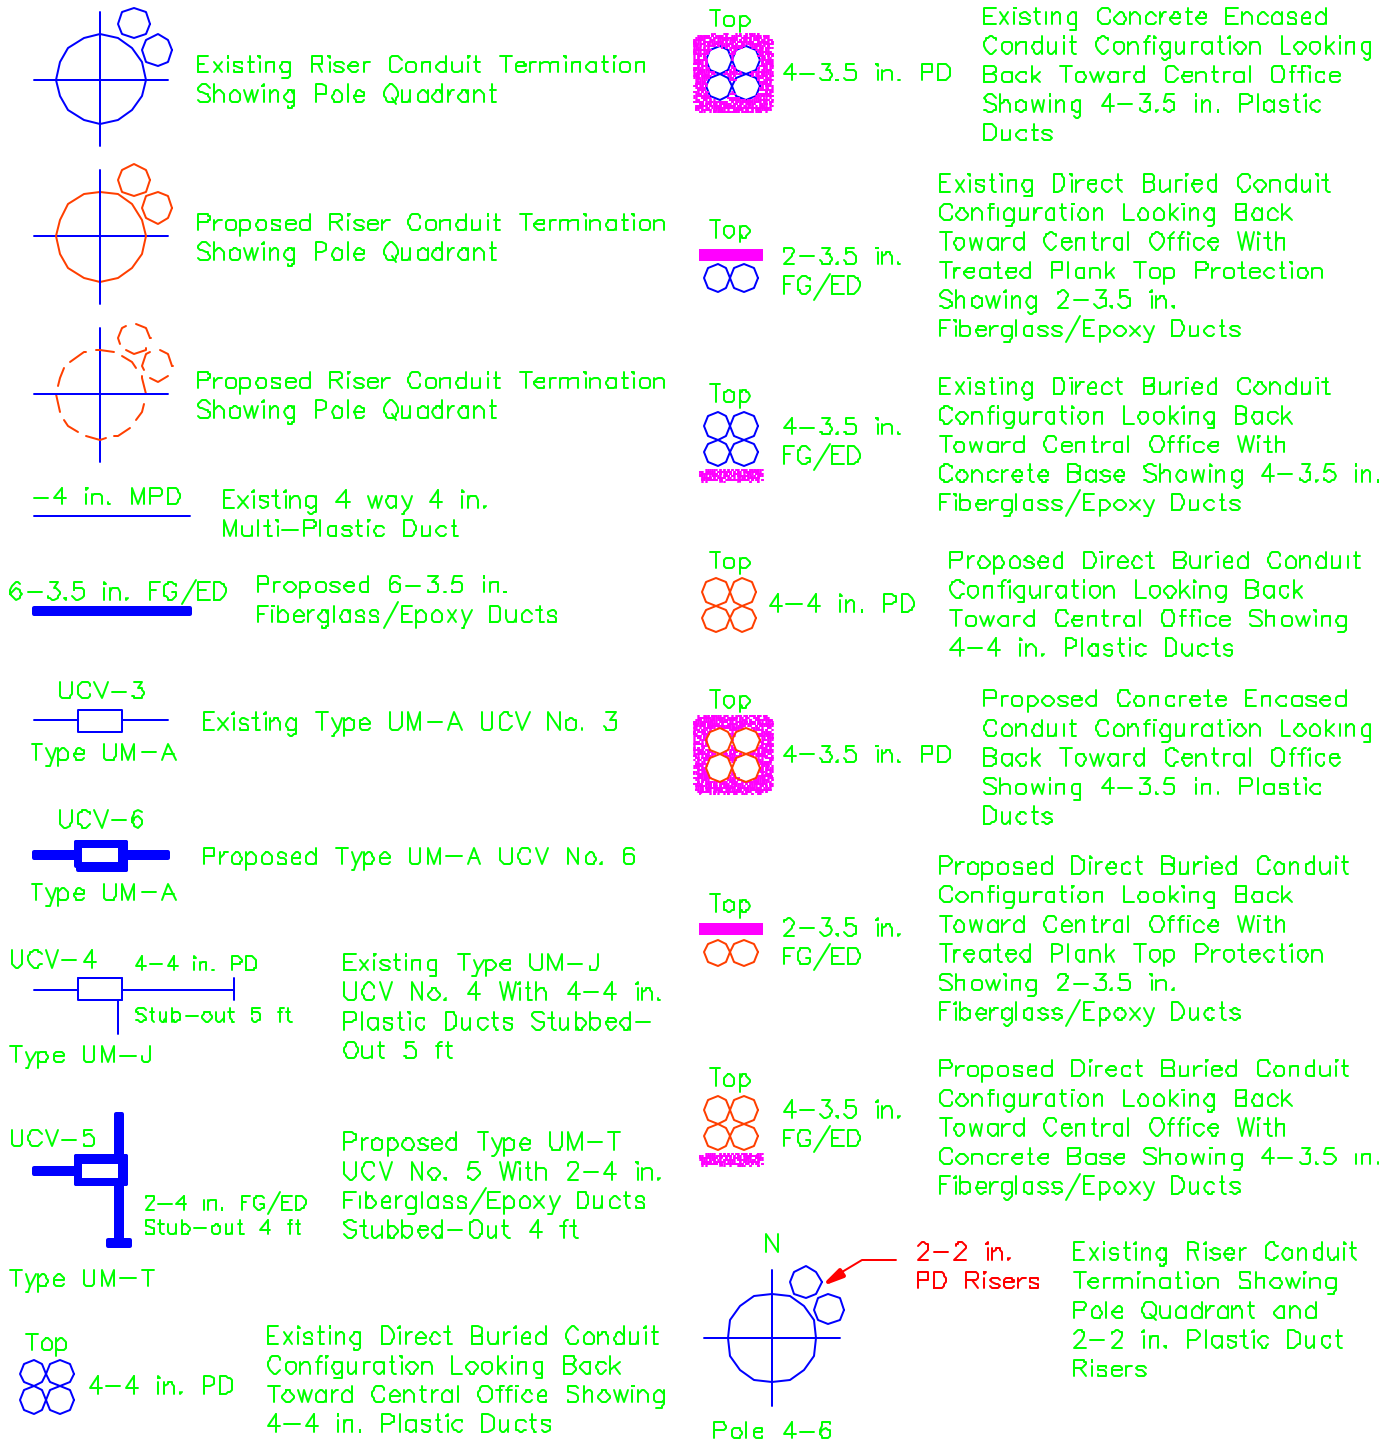 Existing Riser Conduit Termination
Showing Pole Quadrant
Proposed Riser Conduit Termination
Showing Pole Quadrant
Proposed Riser Conduit Termination
Showing Pole Quadrant
-4 in. MPD
Existing 4 way 4 in.
Multi-Plastic Duct
6-3.5 in. FG/ED
Proposed 6-3.5 in.
Fiberglass/Epoxy Ducts
UCV-3
Type UM-A
Existing Type UM-A UCV No. 3
UCV-6
Type UM-A
Proposed Type UM-A UCV No. 6
UCV-4
4-4 in. PD
Stub-out 5 ft
Type UM-J
Existing Type UM-J
UCV No. 4 With 4-4 in.
Plastic Ducts Stubbed-
Out 5 ft
UCV-5
2-4 in. FG/ED
Stub-out 4 ft
Type UM-T
Proposed Type UM-T
UCV No. 5 With 2-4 in.
Fiberglass/Epoxy Ducts
Stubbed-Out 4 ft
Top
4-4 in. PD
Existing Direct Buried Conduit
Configuration Looking Back
Toward Central Office Showing
4-4 in. Plastic Ducts
Top
4-3.5 in. PD
Existing Concrete Encased
Conduit Configuration Looking
Back Toward Central Office
Showing 4-3.5 in. Plastic
Ducts
Top
2-3.5 in.
FG/ED
Existing Direct Buried Conduit
Configuration Looking Back
Toward Central Office With
Treated Plank Top Protection
Showing 2-3.5 in.
Fiberglass/Epoxy Ducts
Top
4-3.5 in.
FG/ED
Existing Direct Buried Conduit
Configuration Looking Back
Toward Central Office With
Concrete Base Showing 4-3.5 in.
Fiberglass/Epoxy Ducts
Top
4-4 in. PD
Proposed Direct Buried Conduit
Configuration Looking Back
Toward Central Office Showing
4-4 in. Plastic Ducts
Top
4-3.5 in. PD
Proposed Concrete Encased
Conduit Configuration Looking
Back Toward Central Office
Showing 4-3.5 in. Plastic
Ducts
Top
2-3.5 in.
FG/ED
Proposed Direct Buried Conduit
Configuration Looking Back
Toward Central Office With
Treated Plank Top Protection
Showing 2-3.5 in.
Fiberglass/Epoxy Ducts
Top
4-3.5 in.
FG/ED
Proposed Direct Buried Conduit
Configuration Looking Back
Toward Central Office With
Concrete Base Showing 4-3.5 in.
Fiberglass/Epoxy Ducts
N
2-2 in.
PD Risers
Pole 4-6
Existing Riser Conduit
Termination Showing
Pole Quadrant and
2-2 in. Plastic Duct
Risers